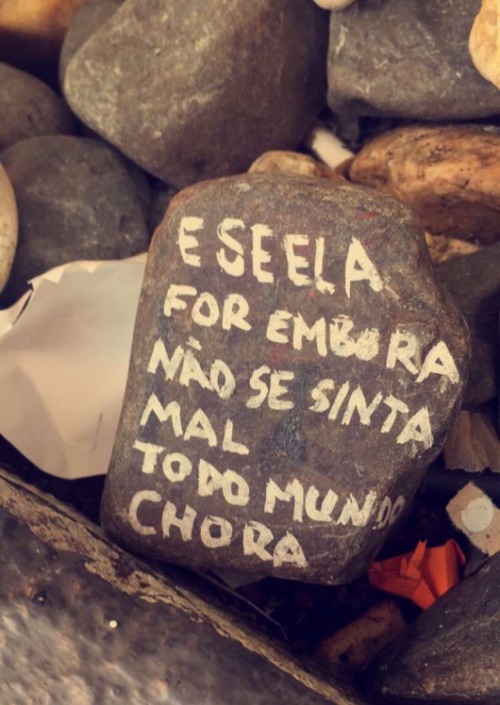 E SE ELA
FOR EMBORA
NÃO SE SINTA
MAL
TODO MUNDO
CHORA